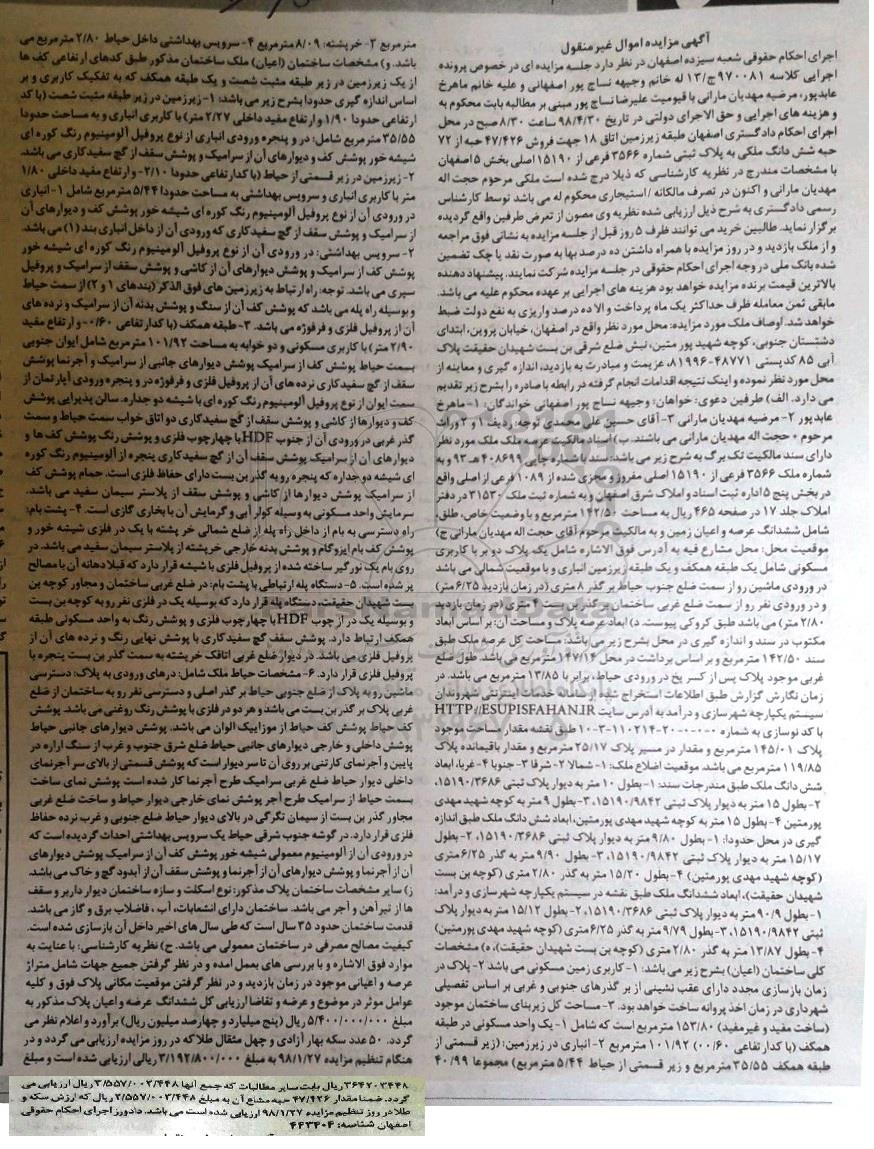 آگهی مزایده اموال غیر منقول
اجرای احکام حقوقی شعبه سیزده اصفهان در نظر دارد جلسه مزایده ای در خصوص پرونده
اجرایی کلاسه ۹۷۰۰۸۱ج/۱۳ له خانم وجیهه نساج پور اصفهانی و علیه خانم ماهرخ
عابدپور، مرضیه مهدیان مارانی با قیمومیت علیرضا نساج پور مبنی بر مطالبه بابت محکوم به
و هزینه های اجرایی و حق الاجرای دولتی در تاریخ ۹۸/۴/۳۰ ساعت ۸/۳۰ صبح در محل
اجرای احکام دادگستری اصفهان طبقه زیرزمین اتاق ۱۸ جهت فروش ۴۷/۴۲۶ حبه از ۷۲
حبه شش دانگ ملکی به پلاک ثبتی شماره ۳۵۶۶ فرعی از ۱۵۱۹۰ اصلی بخش ۵ اصفهان
با مشخصات مندرج در نظریه کارشناسی که ذیلا درج شده است ملکی مرحوم حجت اله
مهدیان مارانی و اکنون در تصرف مالکانه / استیجاری محکوم له می باشد توسط کارشناس
رسمی دادگستری به شرح ذیل ارزیابی شده نظریه وی مصون از تعرض طرفین واقع گردیده
برگزار نماید. طالبین خرید می توانند ظرف ۵ روز قبل از جلسه مزایده به نشانی فوق مراجعه
و از ملک بازدید و در روز مزایده با همراه داشتن ده درصد بها به صورت نقد یا چک تضمین
شده بانک ملی در وجه اجرای احکام حقوقی در جلسه مزایده شرکت نمایند. پیشنهاد دهنده
بالاترین قیمت برنده مزایده خواهد بود هزینه های اجرایی بر عهده محکوم علیه می باشد.
مابقی ثمن معامله ظرف حداکثر یک ماه پرداخت و الا ده درصد واریزی به نفع دولت ضبط
خواهد شد. اوصاف ملک مورد مزایده: محل مورد نظر واقع در اصفهان، خیابان پروین، ابتدای
دشتستان جنوبی، کوچه شهید پور متین، نبش ضلع شرقی بن بست شهیدان حقیقت پلاک
آبی ۸۵ کدپستی ۴۸۷۷۱-۸۱۹۹۶، عزیمت و مبادرت به بازدید، اندازه گیری و معاینه از
محل مورد نظر نموده و اینک نتیجه اقدامات انجام گرفته در رابطه با صادره را بشرح زیر تقدیم
می دارد. الف) طرفین دعوی: خواهان: وجیهه نساج پور اصفهانی خواندگان: ۱- ماهرخ
عابدپور ۲- مرضیه مهدیان مارانی ۳- آقای حسین علی محمدی توجه: ردیف ۱ و ۲ وراث
مرحوم حجت اله مهدیان مارانی می باشند. ب) اسناد مالکیت عرصه ملک ملک مورد نظر
دارای سند مالکیت تک برگ به شرح زیر می باشد: سند با شماره چاپی ۴۰۸۶۹۹ هـ ۹۳ و به
شماره ملک ۳۵۶۶ فرعی از ۱۵۱۹۰ اصلی مفروز و مجزی شده از ۱۰۸۹ فرعی از اصلی واقع
در بخش پنج ۵ اداره ثبت اسناد و املاک شرق اصفهان و به شماره ثبت ملک ۳۱۵۳۰ در دفتر
املاک جلد ۱۷ در صفحه ۴۶۵ ریال به مساحت ۱۴۲/۵۰ مترمربع و با وضعیت خاص، طلق،
شامل ششدانگ عرصه و اعیان زمین و به مالکیت مرحوم آقای حجت اله مهدیان مارانی ج)
موقعیت محل: محل مشارع فیه به آدرس فوق الاشاره شامل یک پلاک دو بر با کاربری
مسکونی شامل یک طبقه همکف و یک طبقه زیرزمین انباری و با موقعیت شمالی می باشد
در ورودی ماشین رو از سمت ضلع جنوب حیاط بر گذر ۸ متری (در زمان بازدید ۶/۲۵ متر)
و در ورودی نفر رو از سمت ضلع غربی ساختمان بر گذر بن بست ۲ متری (در زمان بازدید
۲/۸۰ متر) می باشد طبق کروکی پیوست. د) ابعاد عرصه پلاک و مساحت آن: بر اساس ابعاد
مکتوب در سند و اندازه گیری در محل بشرح زیر می باشد: مساحت کل عرصه ملک طبق
سند ۱۴۲/۵۰ مترمربع و بر اساس برداشت در محل ۱۴۷/۱۴ مترمربع می باشد. طول ضلع
غربی موجود پلاک پس از کسر پخ در ورودی حیاط، برابر با ۱۳/۸۵ مترمربع می باشد. در
زمان نگارش گزارش طبق اطلاعات استخراج شده از سامانه خدمات اینترنتی شهروندان
سیستم یکپارچه شهرسازی و درآمد به آدرس سایت HTTP//ESUPISFAHAN.IR
با کد نوسازی به شماره ۰-۰-۰-۰-۲۰-۱۱۰۲۱۴-۳-۱۰ طبق نقشه مقدار مساحت موجود
پلاک ۱۴۵/۰۱ مترمربع و مقدار در مسیر پلاک ۲۵/۱۷ مترمربع و مقدار باقیمانده پلاک
۱۱۹/۸۵ مترمربع می باشد. موقعیت اضلاع ملک: ۱- شمالا ۲- شرقا ۳- جنوبا ۴- غربا، ابعاد
شش دانگ ملک طبق مندرجات سند: ۱- بطول ۱۰ متر به دیوار پلاک ثبتی ۱۵۱۹۰/۳۶۸۶،
۲- بطول ۱۵ متر به دیوار پلاک ثبتی ۱۵۱۹۰/۹۸۴۲، ۳- بطول ۹ متر به کوچه شهید مهدی
پورمتین ۴- بطول ۱۵ متر به کوچه شهید مهدی پورمتین، ابعاد شش دانگ ملک طبق اندازه
گیری در محل حدودا: ۱- بطول ۹/۸۰ متر به دیوار پلاک ثبتی ۱۵۱۹۰/۳۶۸۶، ۲- بطول
۱۵/۱۷ متر به دیوار پلاک ثبتی ۱۵۱۹۰/۹۸۴۲، ۳- بطول ۹/۹۰ متر به گذر ۶/۲۵ متری
(کوچه شهید مهدی پورمتین) ۴- بطول ۱۵/۲۰ متر به گذر ۲/۸۰ متری (کوچه بن بست
شهیدان حقیقت)، ابعاد ششدانگ ملک طبق نقشه در سیستم یکپارچه شهرسازی و درآمد:
۱- بطول ۹۰/۹ متر به دیوار پلاک ثبتی ۱۵۱۹۰/۳۶۸۶، ۲- بطول ۱۵/۱۲ متر به دیوار پلاک
ثبتی ۱۵۱۹۰/۹۸۴۲، ۳- بطول ۹/۷۹ متر به گذر ۶/۲۵ متری (کوچه شهید مهدی پورمتین)
۴- بطول ۱۳/۸۷ متر به گذر ۲/۸۰ متری (کوچه بن بست شهیدان حقیقت)، ه) مشخصات
کلی ساختمان (اعیان) بشرح زیر می باشد: ۱- کاربری زمین مسکونی می باشد ۲- پلاک در
زمان بازسازی مجدد دارای عقب نشینی از بر گذرهای جنوبی و غربی بر اساس تفصیلی
شهرداری در زمان اخذ پروانه ساخت خواهد بود. ۳- مساحت کل زیربنای ساختمان موجود
(ساخت مفید و غیرمفید) ۱۵۳/۸۰ مترمربع است که شامل ۱- یک واحد مسکونی در طبقه
همکف (با کدارتفاعی ۰۰/۶۰) ۱۰۱/۹۲ مترمربع ۲- انباری در زیرزمین: (زیر قسمتی از
طبقه همکف ۳۵/۵۵ مترمربع و زیر قسمتی از حیاط ۵/۴۴ مترمربع) مجموعا ۴۰/۹۹
مترمربع ۳- خرپشته: ۸/۰۹ مترمربع ۴- سرویس بهداشتی داخل حیاط ۲/۸۰ مترمربع می
باشد. و) مشخصات ساختمان (اعیان) ملک ساختمان مذکور طبق کدهای ارتفاعی کف ها
از یک زیرزمین در زیر طبقه مثبت شصت و یک طبقه همکف که به تفکیک کاربری و بر
اساس اندازه گیری حدودا بشرح زیر می باشد: ۱- زیرزمین در زیر طبقه مثبت شصت (با کد
ارتفاعی حدودا ۱/۹۰ و ارتفاع مفید داخلی ۲/۲۷ متر) با کاربری انباری و به مساحت حدودا
۳۵/۵۵ مترمربع شامل: در و پنجره ورودی انباری از نوع پروفیل آلومینیوم رنگ کوره ای
شیشه خور پوشش کف و دیوارهای آن از سرامیک و پوشش سقف از گچ سفیدکاری می باشد.
۲- زیرزمین در زیر قسمتی از حیاط (با کدارتفاعی حدودا ۲/۱۰- و ارتفاع مفید داخلی ۱/۸۰
متر با کاربری انباری و سرویس بهداشتی به مساحت حدودا ۵/۴۴ مترمربع شامل ۱- انباری
در ورودی آن از نوع پروفیل آلومینیوم رنگ کوره ای شیشه خور پوشش کف و دیوارهای آن
از سرامیک و پوشش سقف از گچ سفیدکاری که ورودی آن از داخل انباری بند (۱) می باشد.
۲- سرویس بهداشتی: در ورودی آن از نوع پروفیل آلومینیوم رنگ کوره ای شیشه خور
پوشش کف از سرامیک و پوشش دیوارهای آن از کاشی و پوشش سقف از سرامیک و پروفیل
سپری می باشد. توجه: راه ارتباط به زیرزمین های فوق الذکر (بندهای ۱ و ۲) از سمت حیاط
و بوسیله راه پله می باشد که پوشش کف آن از سنگ و پوشش بدنه آن از سرامیک و نرده های
آن از پروفیل فلزی و فرفوژه می باشد. ۳- طبقه همکف (با کدارتفاعی ۰/۶۰- و ارتفاع مفید
۲/۹۰ متر) با کاربری مسکونی و دو خوابه به مساحت ۱۰۱/۹۲ مترمربع شامل ایوان جنوبی
بسمت حیاط پوشش کف از سرامیک پوشش دیوارهای جانبی از سرامیک و آجرنما پوشش
سقف از گچ سفیدکاری نرده های آن از پروفیل فلزی و فرفوژه در و پنجره ورودی آپارتمان از
سمت ایوان از نوع پروفیل آلومینیوم رنگ کوره ای با شیشه دو جداره. سالن پذیرایی پوشش
کف و دیوارها از کاشی و پوشش سقف از گچ سفیدکاری دو اتاق خواب سمت حیاط و سمت
گذر غربی در ورودی آن از جنوب HDF با چهارچوب فلزی و پوشش رنگ پوشش کف ها و
دیوارهای آن از سرامیک پوشش سقف آن از گچ سفیدکاری پنجره از آلومینیوم رنگ کوره
ای شیشه دو جداره که پنجره رو به گذر بن بست دارای حفاظ فلزی است. حمام پوشش کف
از سرامیک پوشش دیوارها از کاشی و پوشش سقف از پلاستر سیمان سفید می باشد.
سرمایش واحد مسکونی به وسیله کولر آبی و گرمایش آن با بخاری گازی است. ۴- پشت بام:
راه دسترسی به بام از داخل راه پله از ضلع شمالی خر پشته با یک در فلزی شیشه خور و
پوشش کف بام ایزوگام و پوشش بدنه خارجی خرپشته از پلاستر سیمان سفید می باشد. در
روی بام یک نورگیر ساخته شده از پروفیل فلزی با شیشه قرار دارد که قبلا دهانه آن با مصالح
پر شده است. ۵- دستگاه پله ارتباطی با پشت بام: در ضلع غربی ساختمان و مجاور کوچه بن
بست شهیدان حقیقت، دستگاه پله قرار دارد که بوسیله یک در فلزی نفر رو به کوچه بن بست
و بوسیله یک در از چوب HDF با چهارچوب فلزی و پوشش رنگ به واحد مسکونی طبقه
همکف ارتباط دارد. پوشش سقف گچ سفیدکاری با پوشش نهایی رنگ و نرده های آن از
پروفیل فلزی می باشد. در دیوار ضلع غربی اتاقک خرپشته به سمت گذر بن بست پنجره با
پروفیل فلزی قرار دارد. ۶- مشخصات حیاط ملک شامل: درهای ورودی به پلاک: دسترسی
ماشین رو به پلاک از ضلع جنوبی حیاط بر گذر اصلی و دسترسی نفر رو به ساختمان از ضلع
غربی پلاک بر گذر بن بست می باشد و هر دو در فلزی با پوشش رنگ روغنی می باشد. پوشش
کف حیاط پوشش کف حیاط از موزاییک الوان می باشد. پوشش دیوارهای جانبی حیاط
پوشش داخلی و خارجی دیوارهای جانبی حیاط ضلع شرق جنوب و غرب از سنگ اراره در
پایین و آجرنمای کارتنی بر روی آن تا سر دیوار است که پوشش قسمتی از بالای سر آجرنمای
داخلی دیوار حیاط ضلع غربی سرامیک طرح آجرنما کار شده است پوشش نمای ساخت
بسمت حیاط از سرامیک طرح آجر پوشش نمای خارجی دیوار حیاط و ساخت ضلع غربی
مجاور گذر بن بست از سیمان تگرگی در بالای دیوار حیاط ضلع جنوبی و غرب نرده حفاظ
فلزی قرار دارد. در گوشه جنوب شرقی حیاط یک سرویس بهداشتی احداث گردیده است که
در ورودی آن از آلومینیوم معمولی شیشه خور پوشش کف آن از سرامیک پوشش دیوارهای
آن از آجرنما و پوشش دیوارهای آن از آجرنما و پوشش سقف آن از آبدود گچ و خاک می باشد.
ز) سایر مشخصات ساختمان پلاک مذکور: نوع اسکلت و سازه ساختمان دیوار داربر و سقف
ها از تیرآهن و آجر می باشد. ساختمان دارای انشعابات، آب، فاضلاب برق و گاز می باشد.
قدمت ساختمان حدود ۳۵ سال است که طی سال های اخیر داخل آن بازسازی شده است.
کیفیت مصالح مصرفی در ساختمان معمولی می باشد. ح) نظریه کارشناسی: با عنایت به
موارد فوق الاشاره و با بررسی های بعمل آمده و در نظر گرفتن جمیع جهات شامل متراژ
عرصه و اعیانی موجود در زمان بازدید و در نظر گرفتن موقعیت مکانی پلاک فوق و کلیه
عوامل موثر در موضوع و عرضه و تقاضا ارزیابی کل ششدانگ عرصه و اعیان پلاک مذکور به
مبلغ ۵/۴۰۰/۰۰۰/۰۰۰ ریال (پنج میلیارد و چهارصد میلیون ریال) برآورد و اعلام نظر می
گردد. ۵۰ عدد سکه بهار آزادی و چهل مثقال طلا که در روز مزایده ارزیابی می گردد و در
هنگام تنظیم مزایده ۹۸/۱/۲۷ به مبلغ ۳/۱۹۲/۸۰۰/۰۰۰ ریالی ارزیابی شده است و مبلغ
۳۶۴۲۰۳۴۴۸ ریال بابت سایر مطالبات که جمع آنها ۳/۵۵۷/۰۰۳/۴۴۸ ریال ارزیابی می
گردد. ضمنا مقدار ۴۷/۴۲۶ حبه مشاع آن به مبلغ ۳/۵۵۷/۰۰۳/۴۴۸ ریال که ارزش سکه و
طلا در روز تنظیم مزایده ۹۸/۱/۲۷ ارزیابی شده است می باشد. دادورز اجرای احکام حقوقی
اصفهان شناسه: ۴۴۳۴۰۴